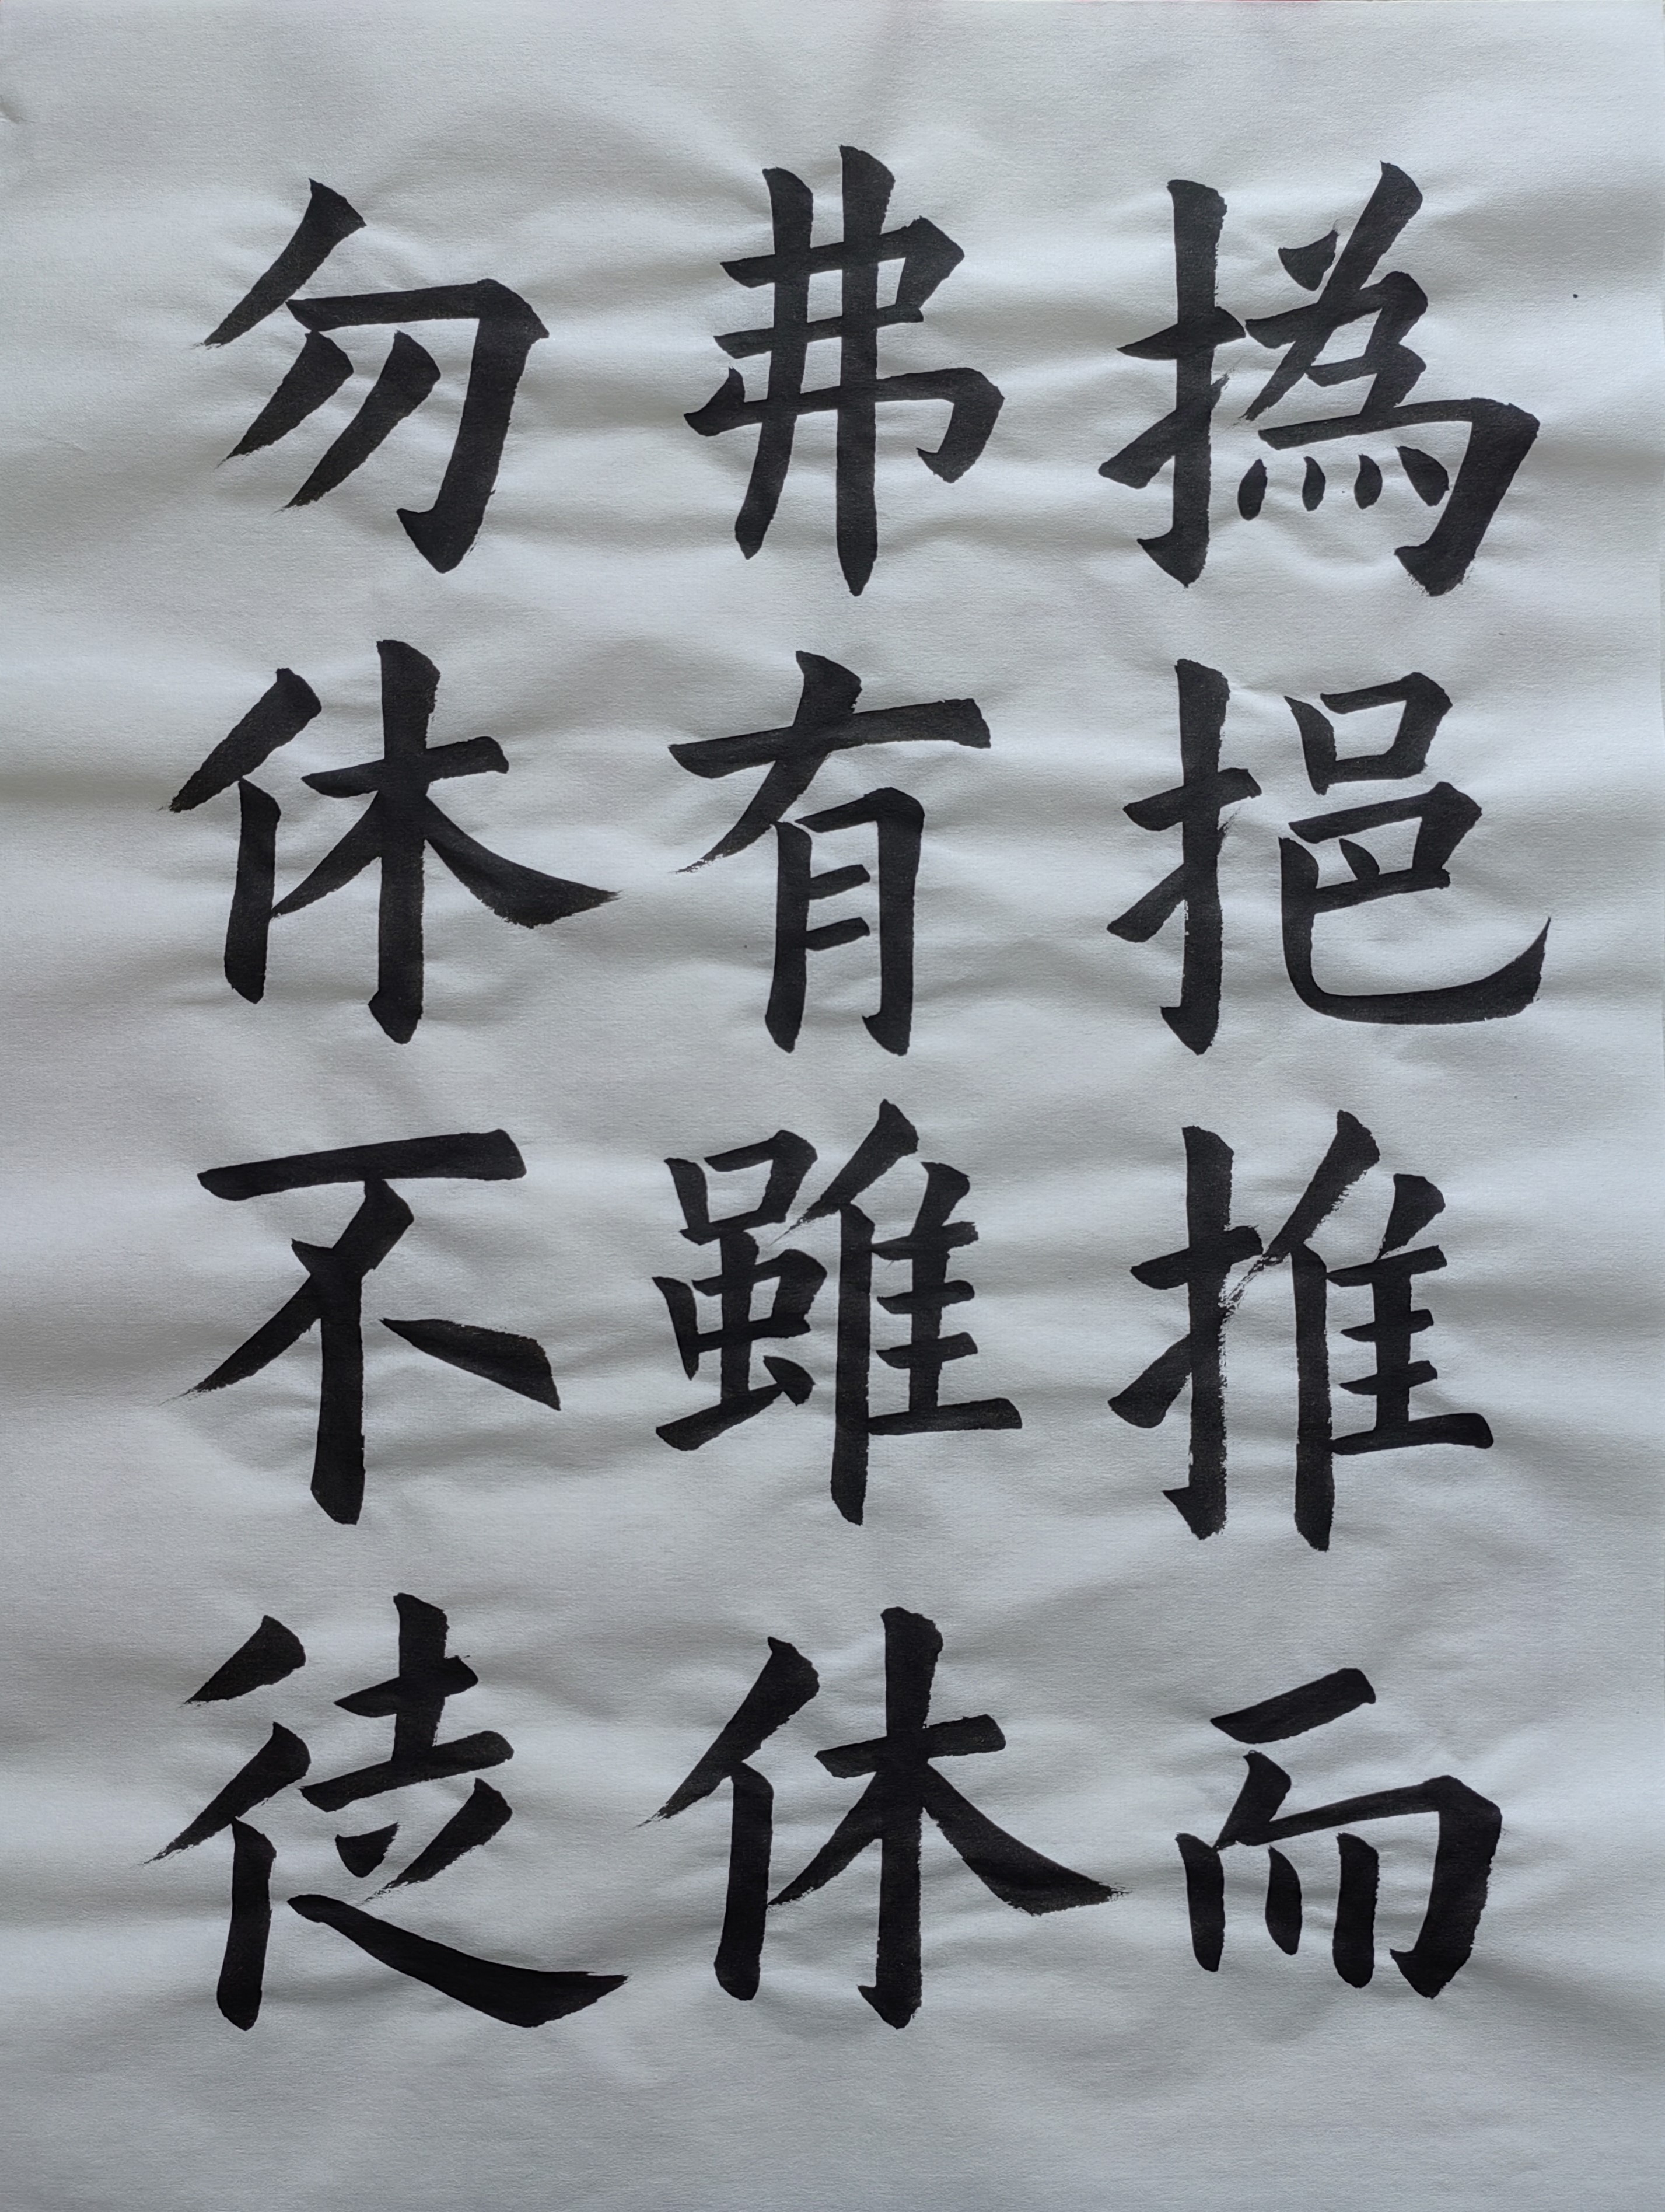 撝挹推而
弗有雖休
勿休不徒